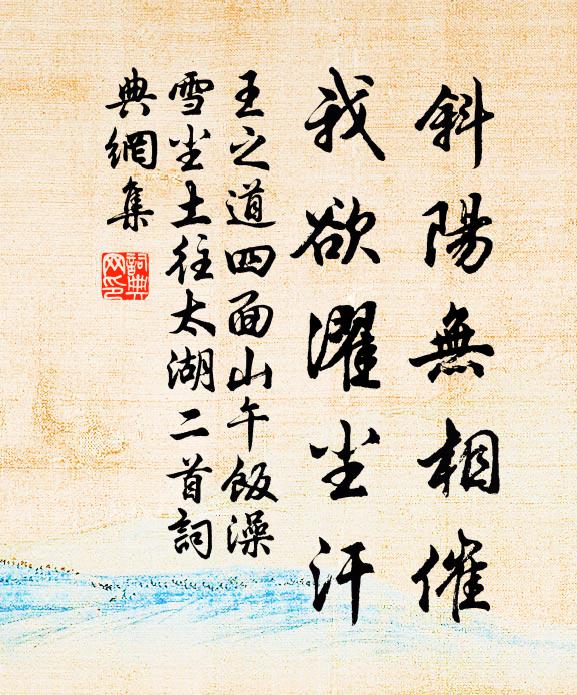 斜陽無相催
我欲濯尘汗
王之道四面山午飯澡
雪尘土往太湖二首詞
典網集
詞典
网印